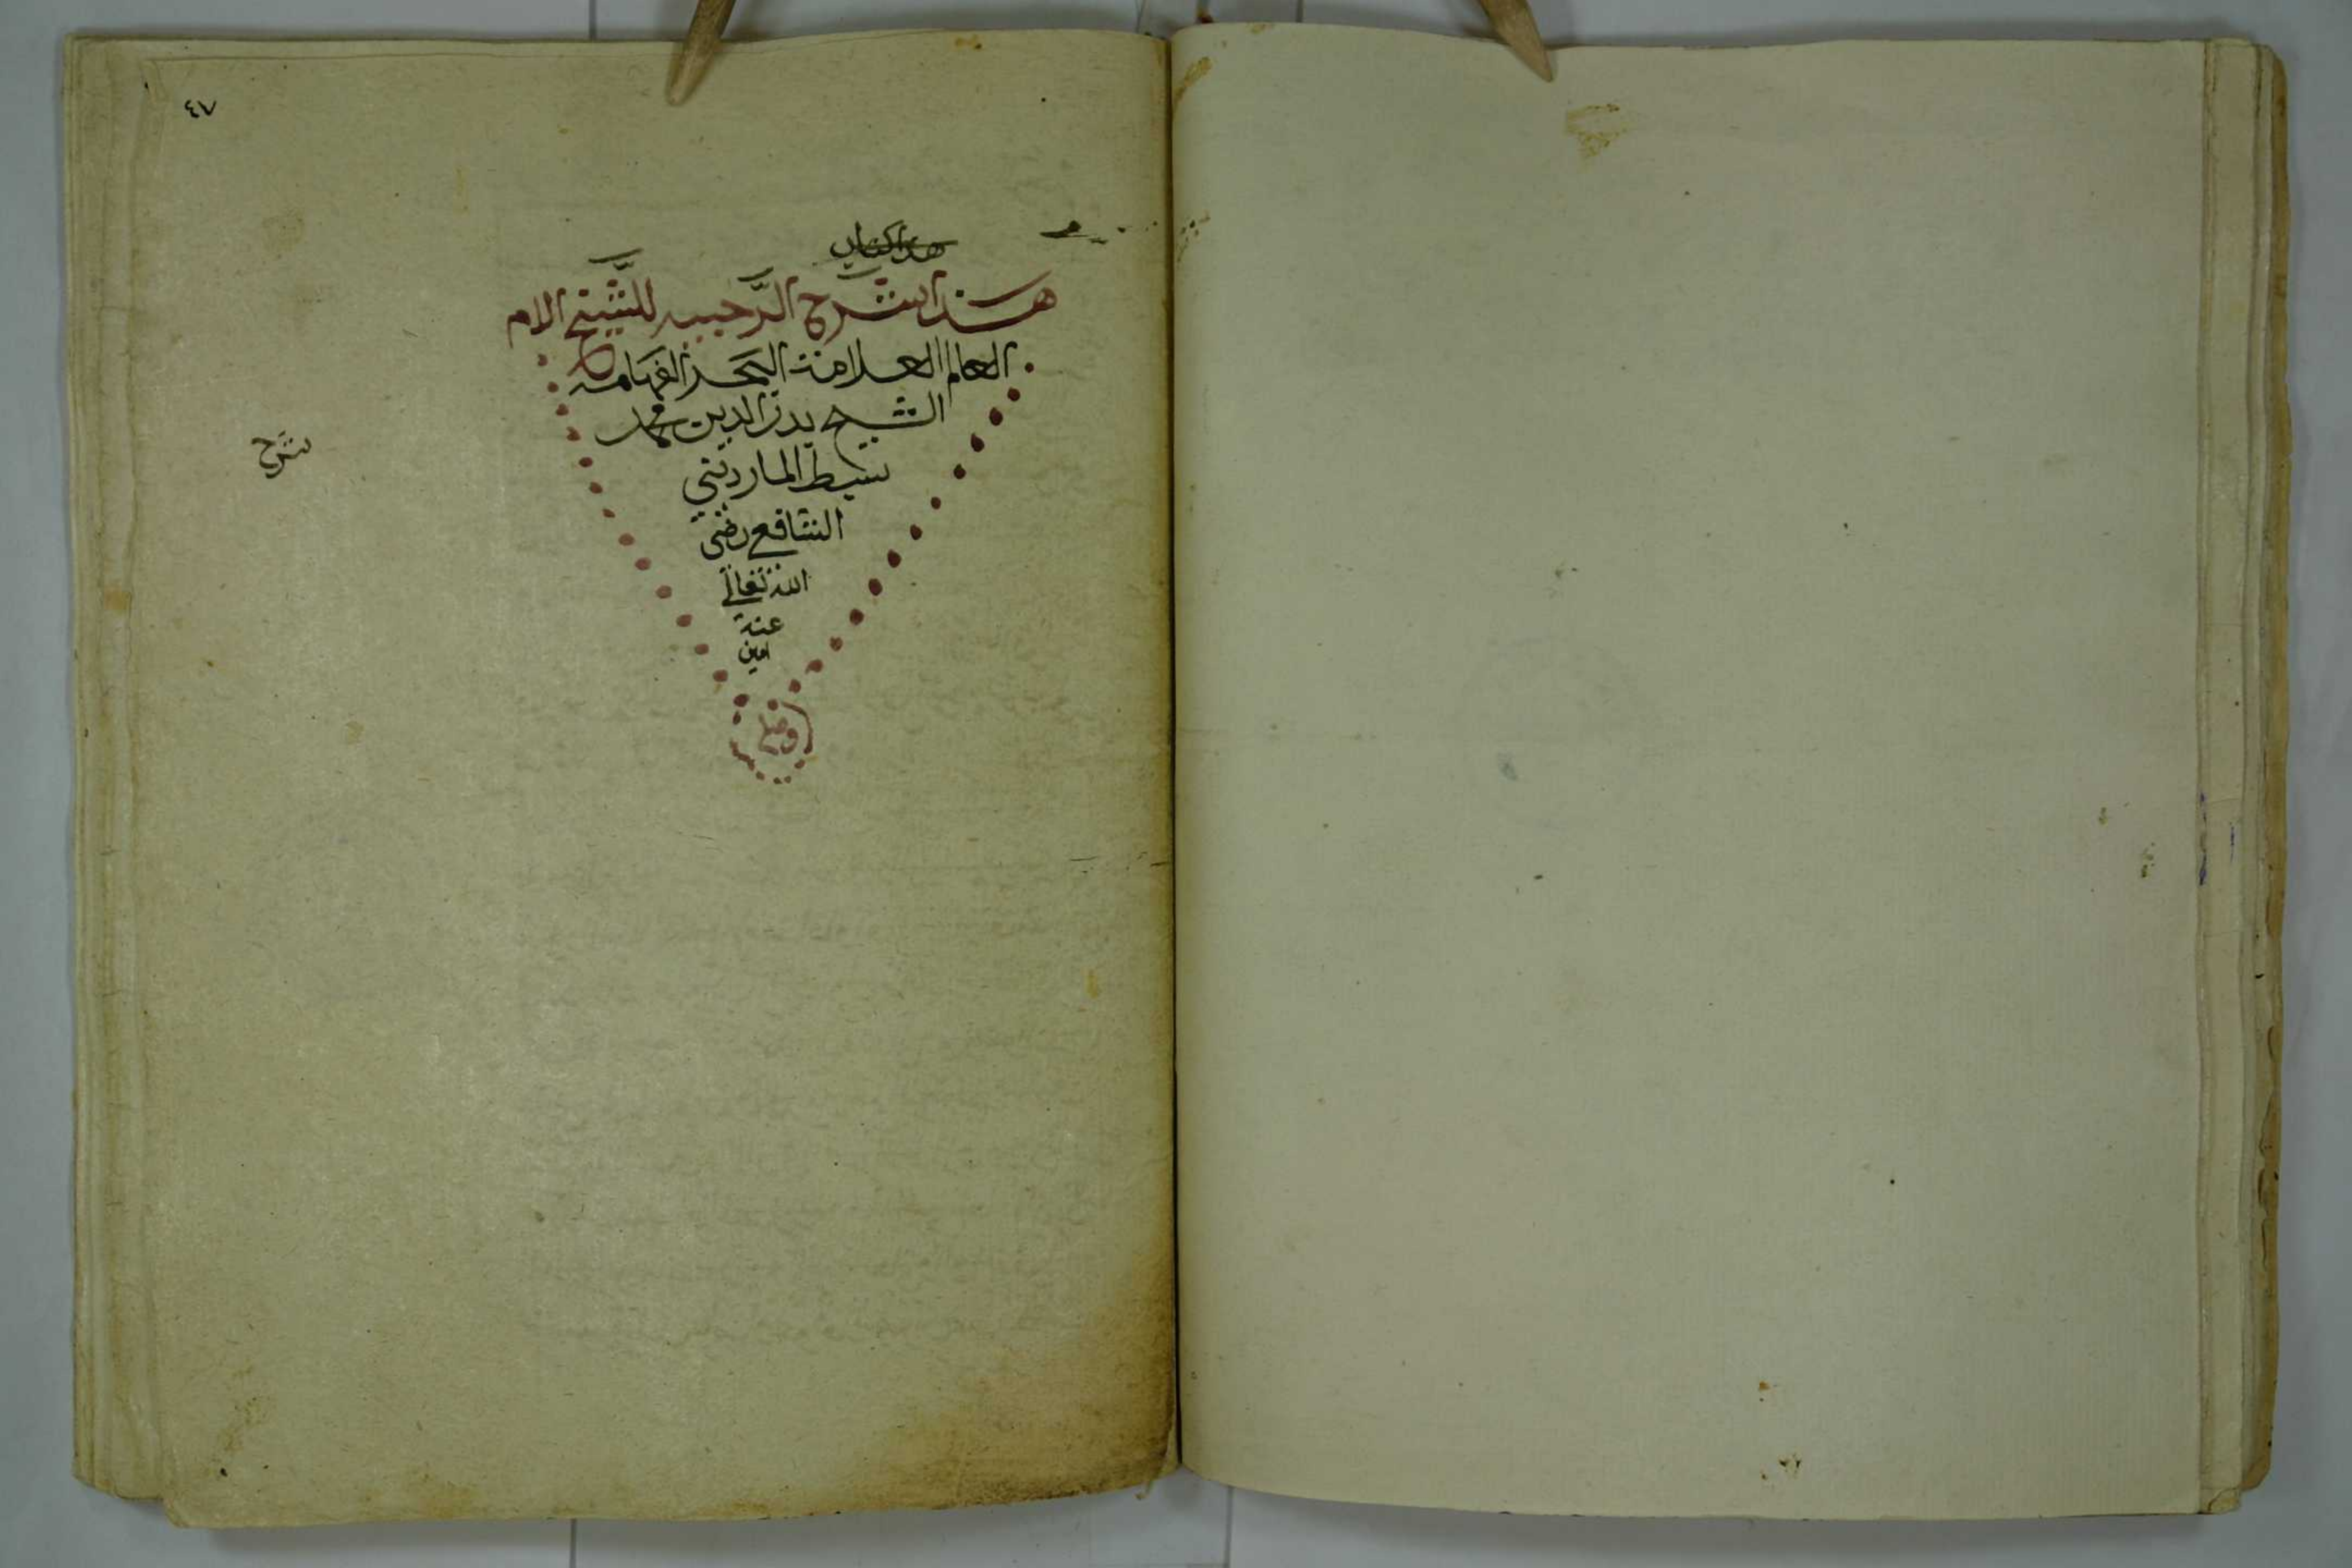 ٤٧
هذا كتاب
هذا شرح الرَّحبيه للشَّيخ الام
العالم العلامة البحر الفهامه
الشيخ بدر الدين محمد
سبط الماردينى
الشافعي رضى
الله تعالى
عنه
امين
شرح